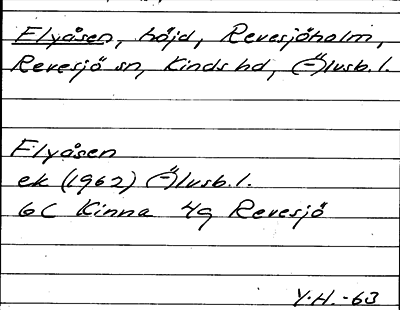 Flyåsen, höjd, Revesjöholm,
Revesjö sn, Kinds hd, (-Ä)lvsb. l.
Flyåsen
ek (1962) (-Ä)lvsb. l.
6C Kinna 4g Revesjö
Y.H. -63